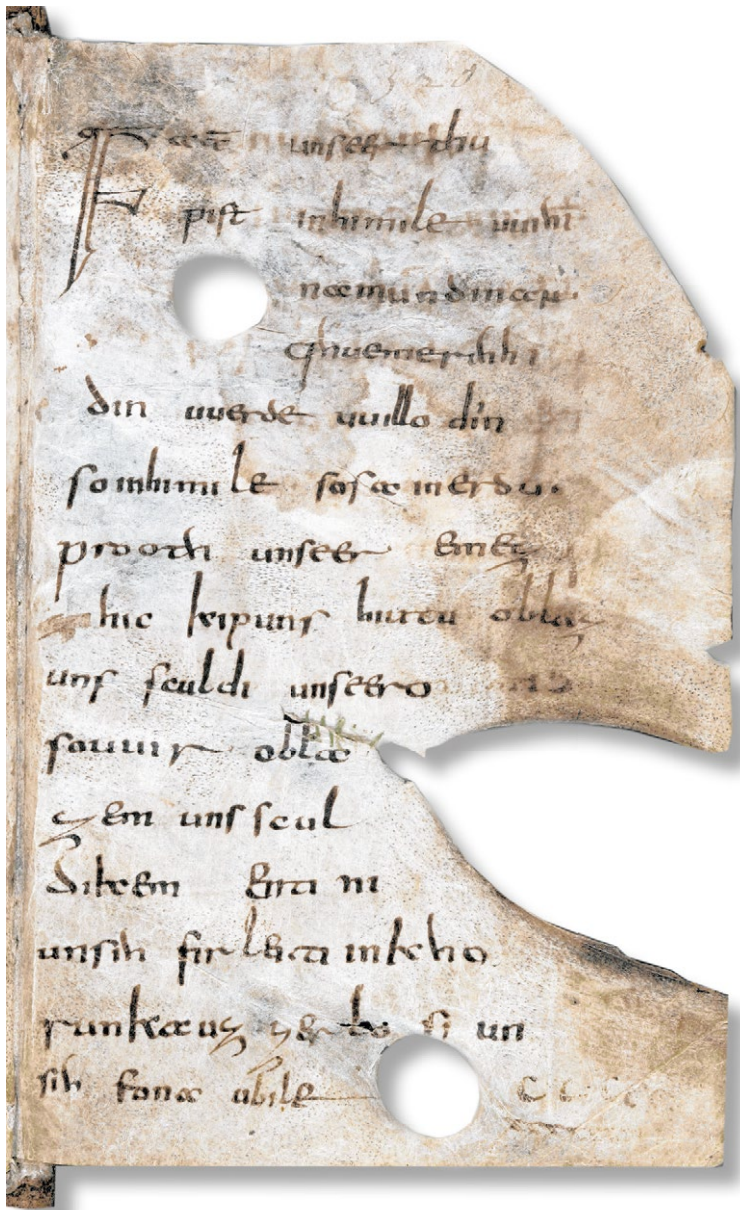 320
Fater unseer thu
pist inhimile uuihi
namun dinan
qhueme rihhi
din uuerde uuillo diin
so inhimile sosa in erdu.
prooth unseer emez
zihic kip uns hiutu oblaz
uns sculdi unseero
so uuir obla
zem uns scul
dikem enti ni
unsih firleiti in khо
runka uzzer losi un
sih fona ubile